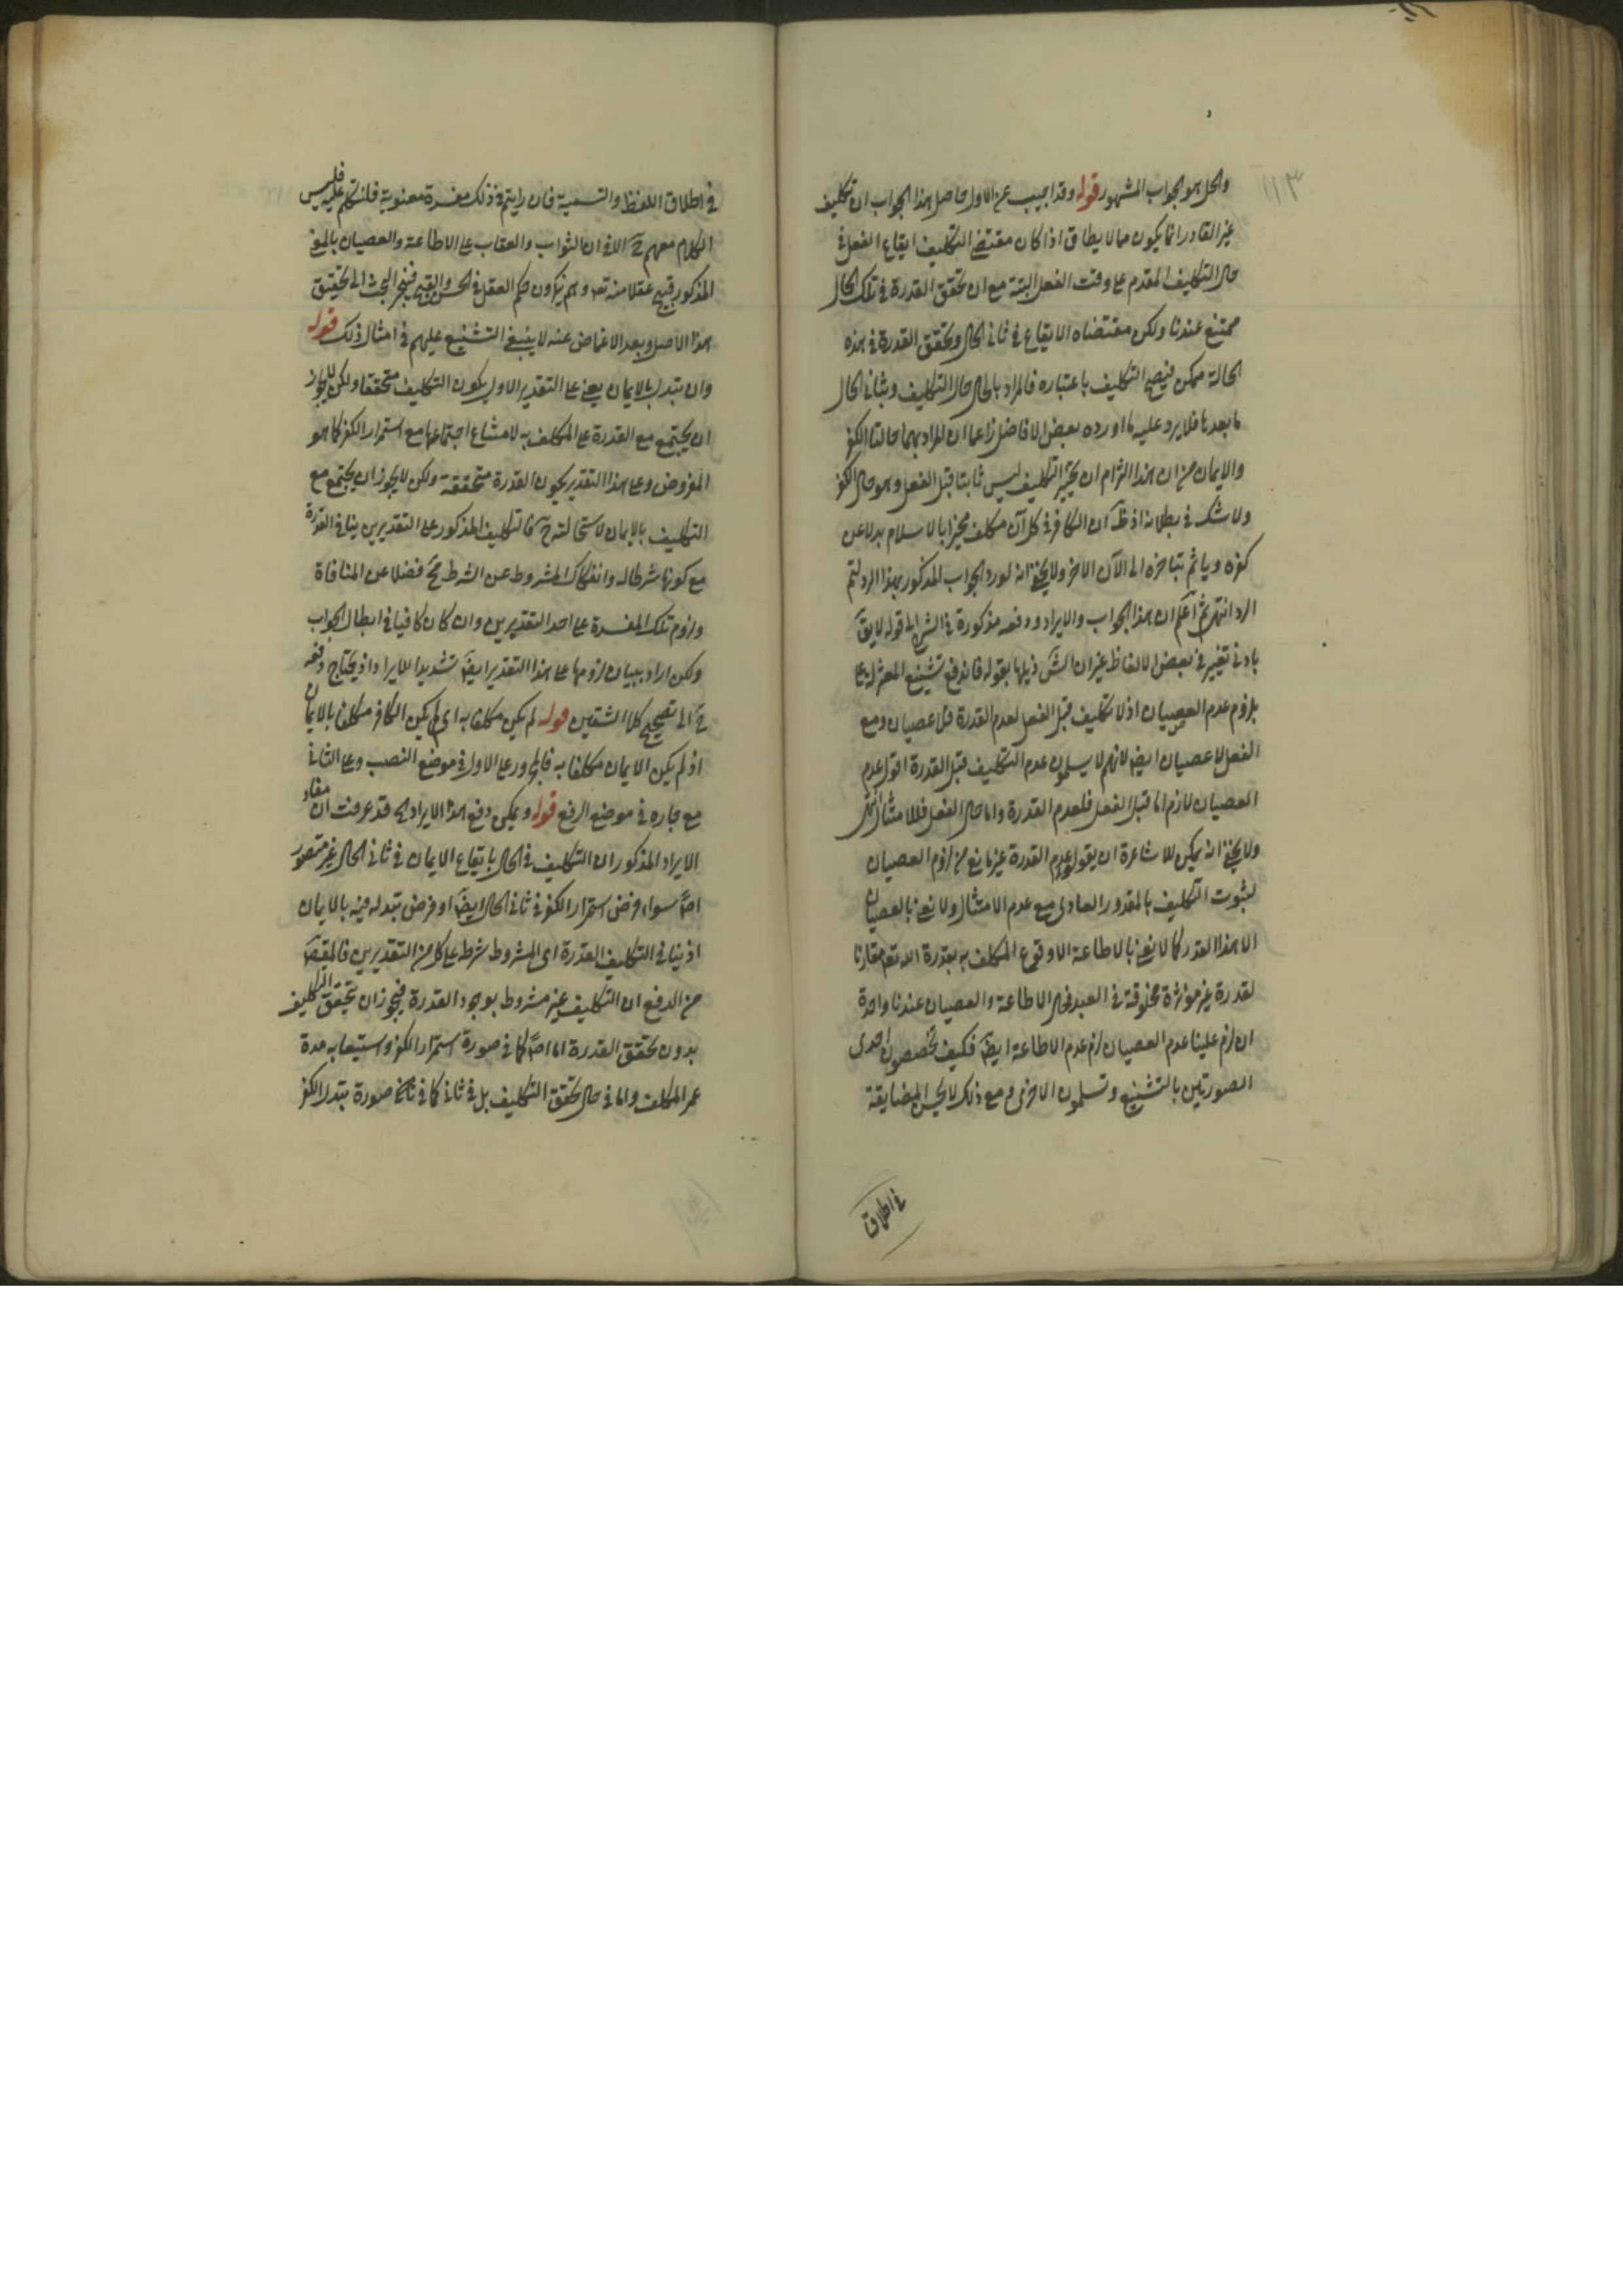 ١١٣
والحل هو الجواب المشهور قوله وقد اجيب عن الاول حاصل هذا الجواب ان تكليف
غير القادر انما يكون مما لا يطاق اذا كان مقتضى التكليف ايقاع الفعل في
حال التكليف المقدم على وقت الفعل البتة مع ان تحقق القدرة في تلك الحال
ممتنع عندنا ولكن مقتضاه الايقاع في ثاني الحال وتحقق القدرة في هذه
الحالة ممكن فيصح التكليف باعتباره فالمراد بالحال حال التكليف وبثاني الحال
ما بعدها فلا يرد عليه ما اورده بعض الافاضل زاعما ان المراد بهما حالتا الكفر
والايمان من ان هذا التزام ان تنجيز التكليف ليس ثابتا قبل الفعل وهو حال الكفر
ولا شك في بطلانه اذ ظ ان الكافر في كل آن مكلف منجزا بالاسلام بدلا عن
كفره وياثم بتاخره الى الآن الاخر ولا يخفى انه لو رد الجواب المذكور بهذا الرد لتم
الرد انتهى ثم اعلم ان هذا الجواب والايراد ودفعه مذكورة في الشرح الى قوله لا يق
بادنى تغيير في بعض الالفاظ غير ان الش ذيلها بقوله فاندفع تشنيع المعتزلة على
بلزوم عدم العصيان اذ لا تكليف قبل الفعل لعدم القدرة فلا عصيان ومع
الفعل لا عصيان ايض لانهم لا يسلمون عدم التكليف قبل القدرة اقول عدم
العصيان لازم اما قبل الفعل فلعدم القدرة واما حال الفعل فللامتثال انتهى
ولا يخفى انه يمكن للاشاعرة ان يقولوا عدم القدرة غير مانع من لزوم العصيان
لثبوت التكليف بالمقدور العادي مع عدم الامتثال ولا نعني بالعصيان
الا هذا القدر كما لا نعني بالاطاعة الا وقوع المكلف به بقدرة الله تعه مقارنا
لقدرة غير مؤثرة مخلوقة في العبد فحال الاطاعة والعصيان عندنا واحدة
ان لزم علينا عدم العصيان لزم عدم الاطاعة ايض فكيف تخصصون احدى
الصورتين بالتشنيع وتسلمون الاخرى ومع ذلك لا يحسن المضايقة
في اطلاق
في اطلاق اللفظ والتسمية فان رايتم في ذلك مفسدة معنوية فلنتكلم عليه فليس
الكلام معهم ح الا في ان الثواب والعقاب على الاطاعة والعصيان بالمعنى
المذكور قبيح عقلا منه تعه وهم ينكرون حكم العقل في الحسن والقبح فينجر البحث الى تحقيق
هذا الاصل وبعد الاغماض عنه لا ينبغي التشنيع عليهم في امثال ذلك قوله
وان تبدل بالايمان يعني على التقدير الاول يكون التكليف متحققا ولكن لا يجوز
ان يجتمع مع القدرة على المكلف به لامتناع اجتماعها مع استمرار الكفر كما هو
المفروض وعلى هذا التقدير يكون القدرة متحققة ولكن لا يجوز ان يجتمع مع
التكليف بالايمان لاستحالته ح فالتكليف المذكور على التقديرين ينافي القدرة
مع كونها شرطا له وانفكاك المشروط عن الشرط مح فضلا عن المنافاة
ولزوم تلك المفسدة على احد التقديرين وان كان كافيا في ابطال الجواب
ولكن اراد ببيان لزومها على هذا التقدير ايض تشديدا للايراد اذ يحتاج دفعه
ح الى تصحيح كلا الشقين قوله لم يكن مكلفا به اي لم يكن الكافر مكلفا بالايمان
اذ لم يكن الايمان مكلفا به فالمجرور على الاول في موضع النصب وعلى الثاني
مع جاره في موضع الرفع قوله ويمكن دفع هذا الايراد الخ قد عرفت ان مفاد
الايراد المذكور ان التكليف في الحال بايقاع الايمان في ثاني الحال غير متصور
اصلا سواء فرض استمرار الكفر في ثاني الحال ايض او فرض تبدله فيه بالايمان
اذ ينافي التكليف القدرة اي المشروط شرطه على كل من التقديرين فالمقص
من الدفع ان التكليف غير مشروط بوجود القدرة فيجوز ان يتحقق التكليف
بدون تحقق القدرة اما اصلا كما في صورة استمرار الكفر واستيعابه مدة
عمر المكلف واما في حال تحقق التكليف بل في ثاني كما في صورة تبدل الكفر